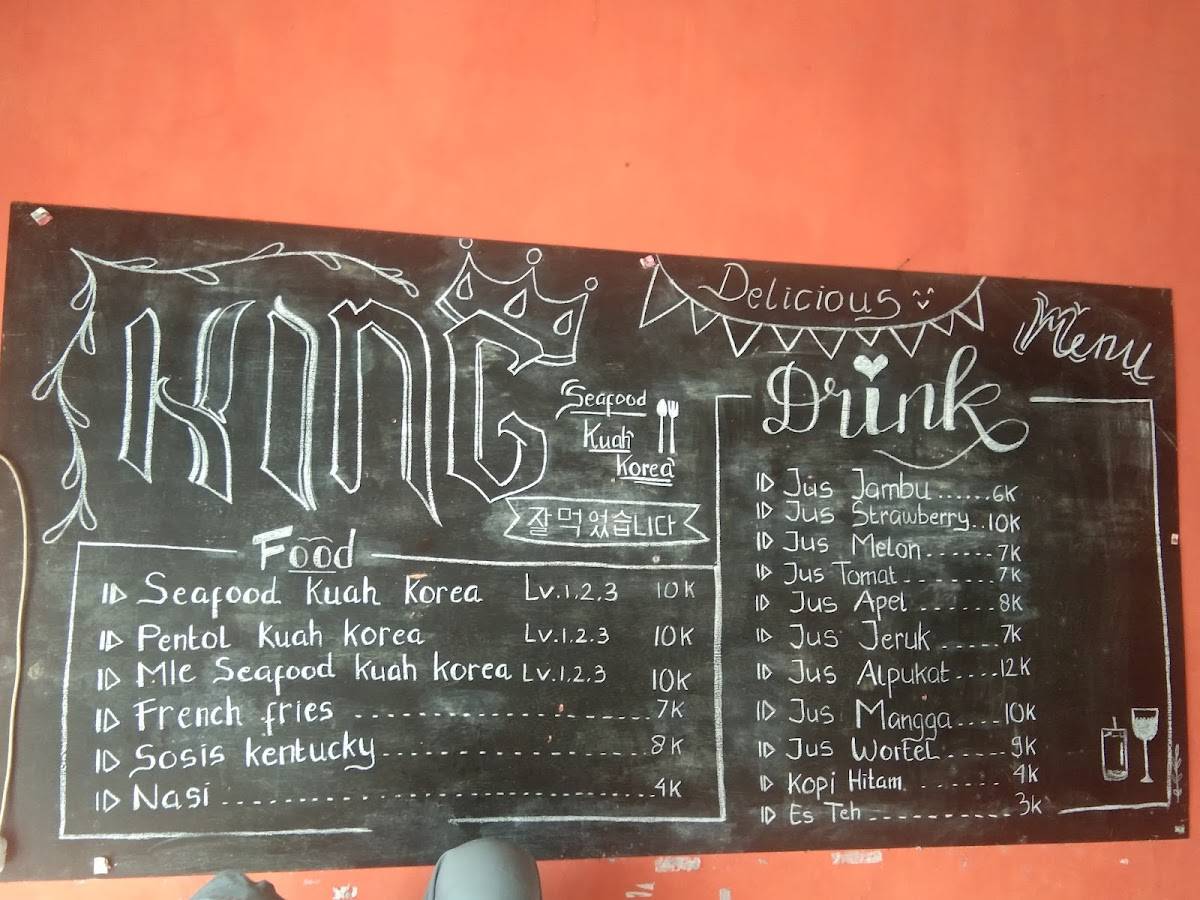 KING
Seafood
Kuah
Korea
잘 먹었습니다
Delicious
Menu
Food
Seafood Kuah Korea Lv.1,2,3 10K
Pentol Kuah Korea Lv.1.2.3 10K
MIe Seafood Kuah Korea Lv.1,2,3 10K
French fries ........................ 7K
Sosis kentucky ........................ 8K
Nasi ........................ 4K
Drink
Jus Jambu ...... 6K
Jus Strawberry .. 10K
Jus Melon ...... 7K
Jus Tomat ........ 7K
Jus Apel ....... 8K
Jus Jeruk ..... 7K
Jus Alpukat .... 12K
Jus Mangga .... 10K
Jus Wortel ...... 9K
Kopi Hitam ........ 4K
Es Teh ............ 3K